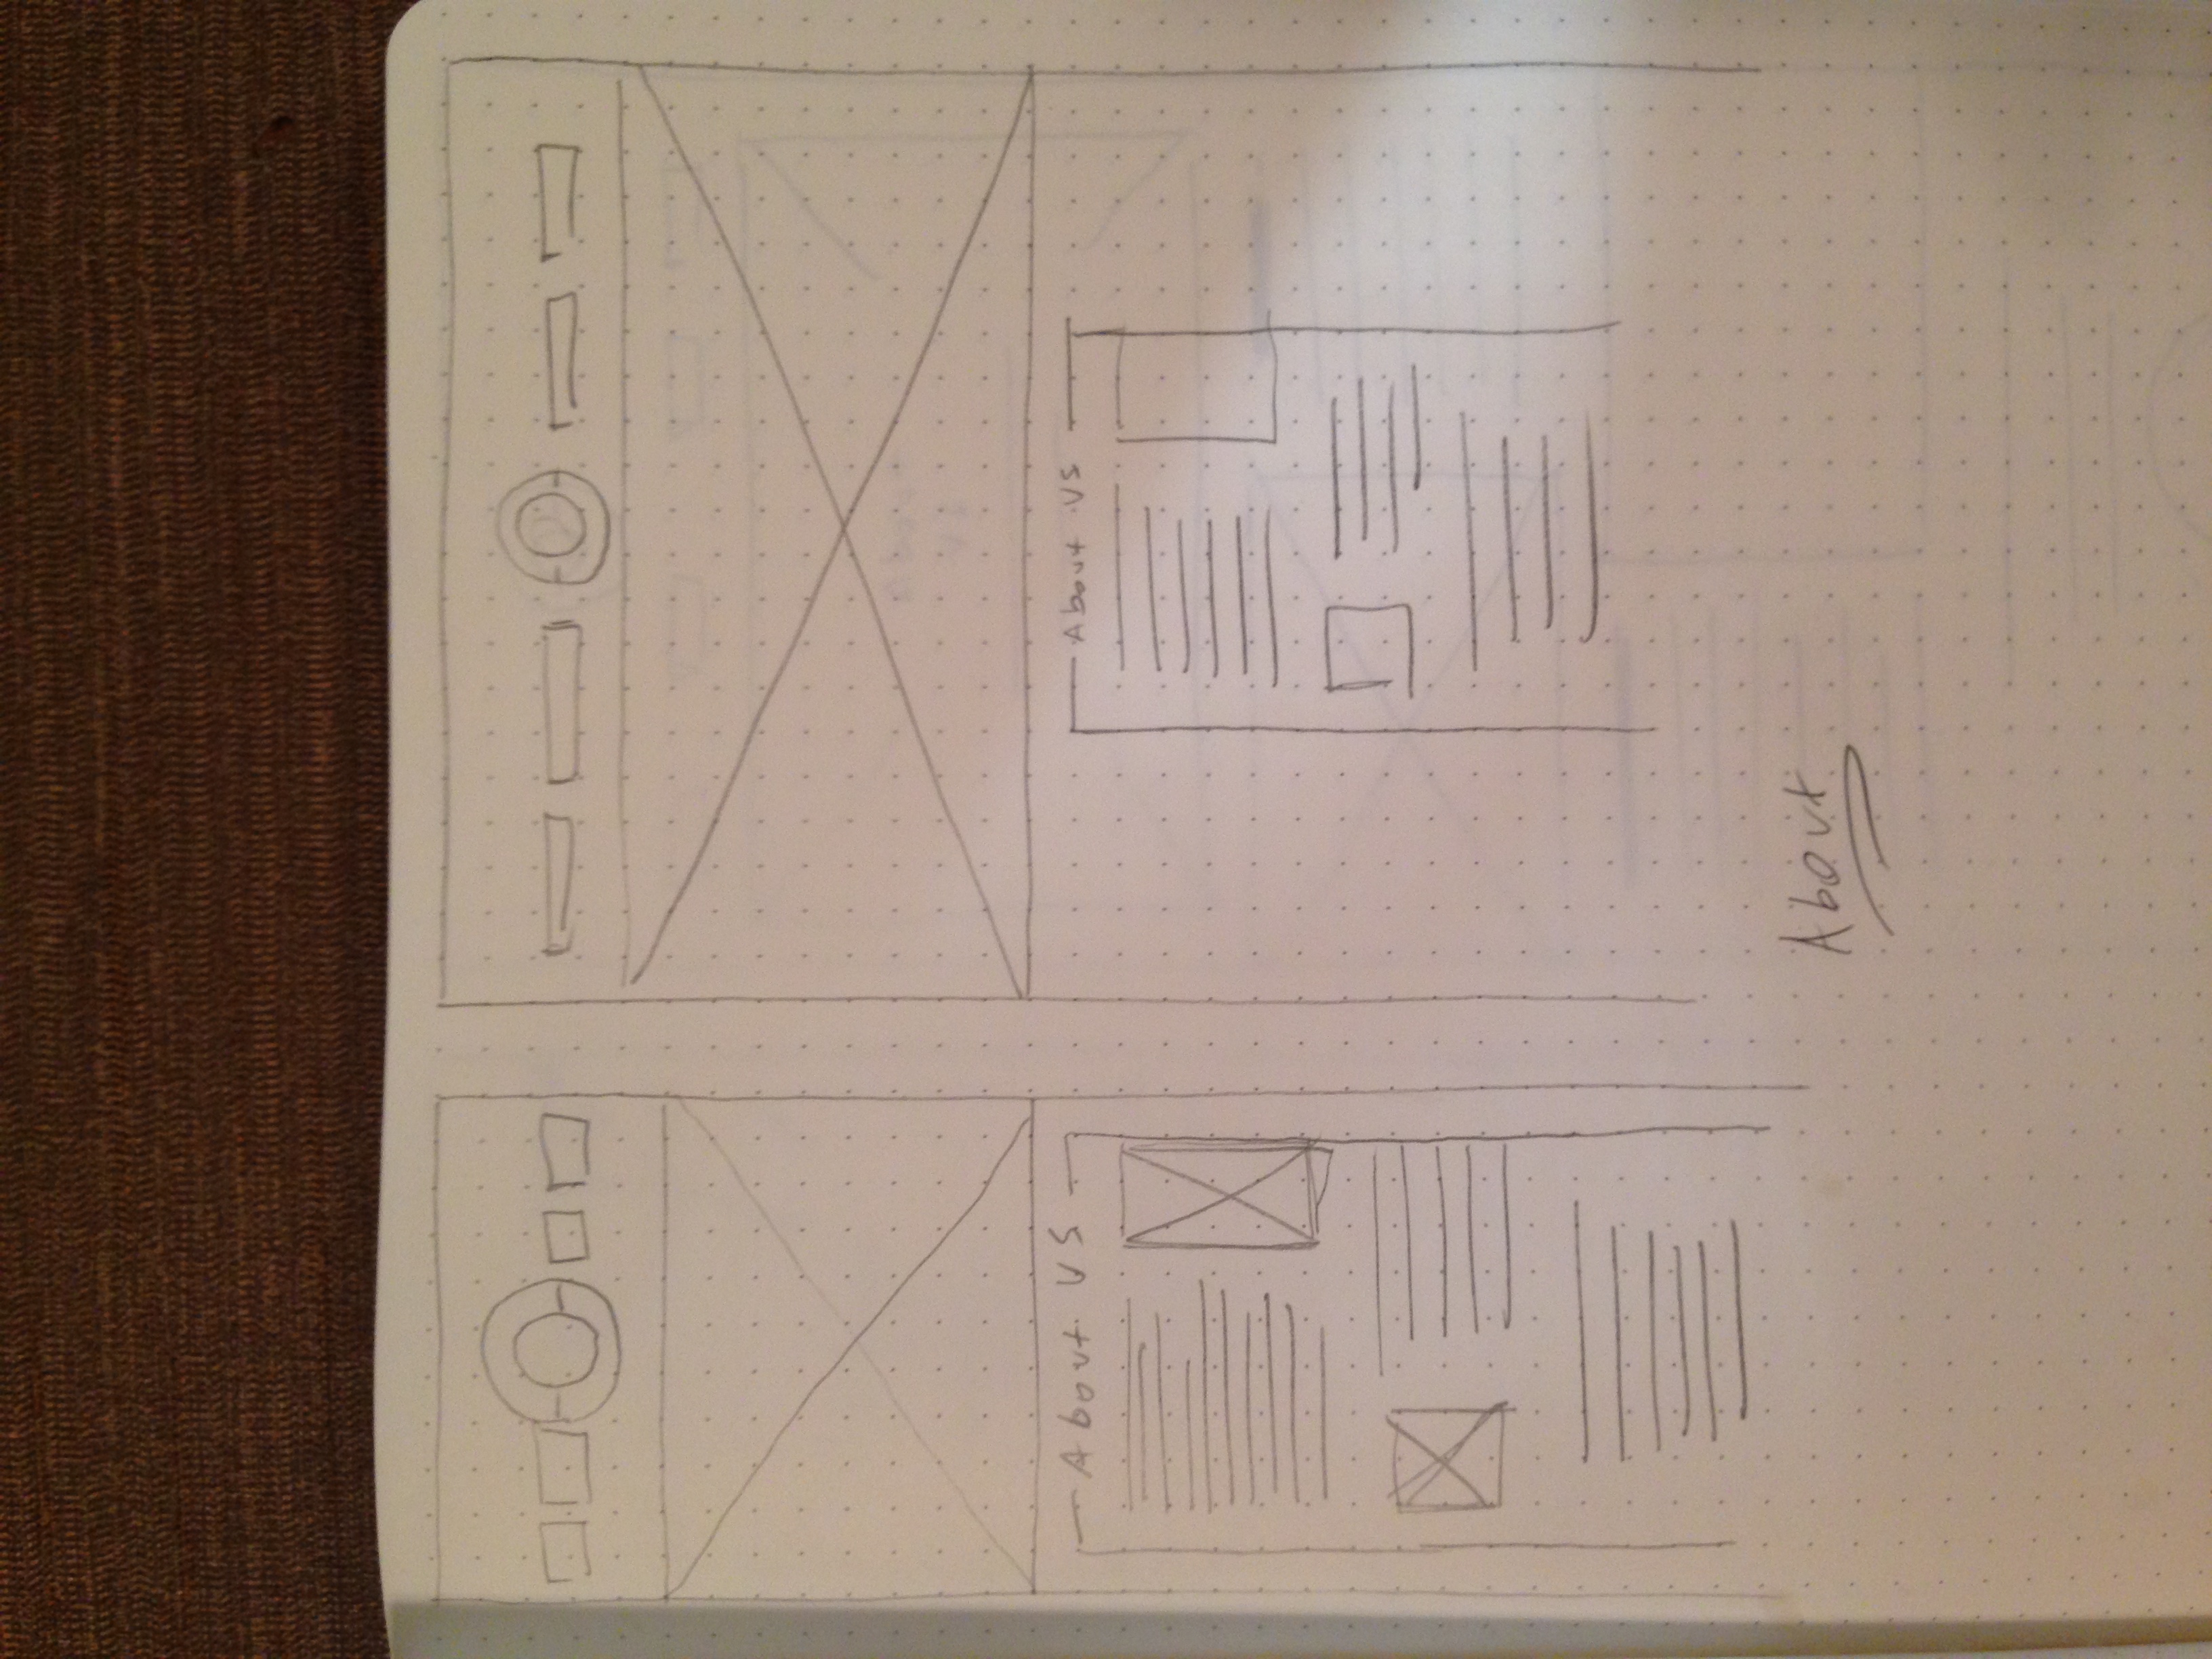 About US
About US
About